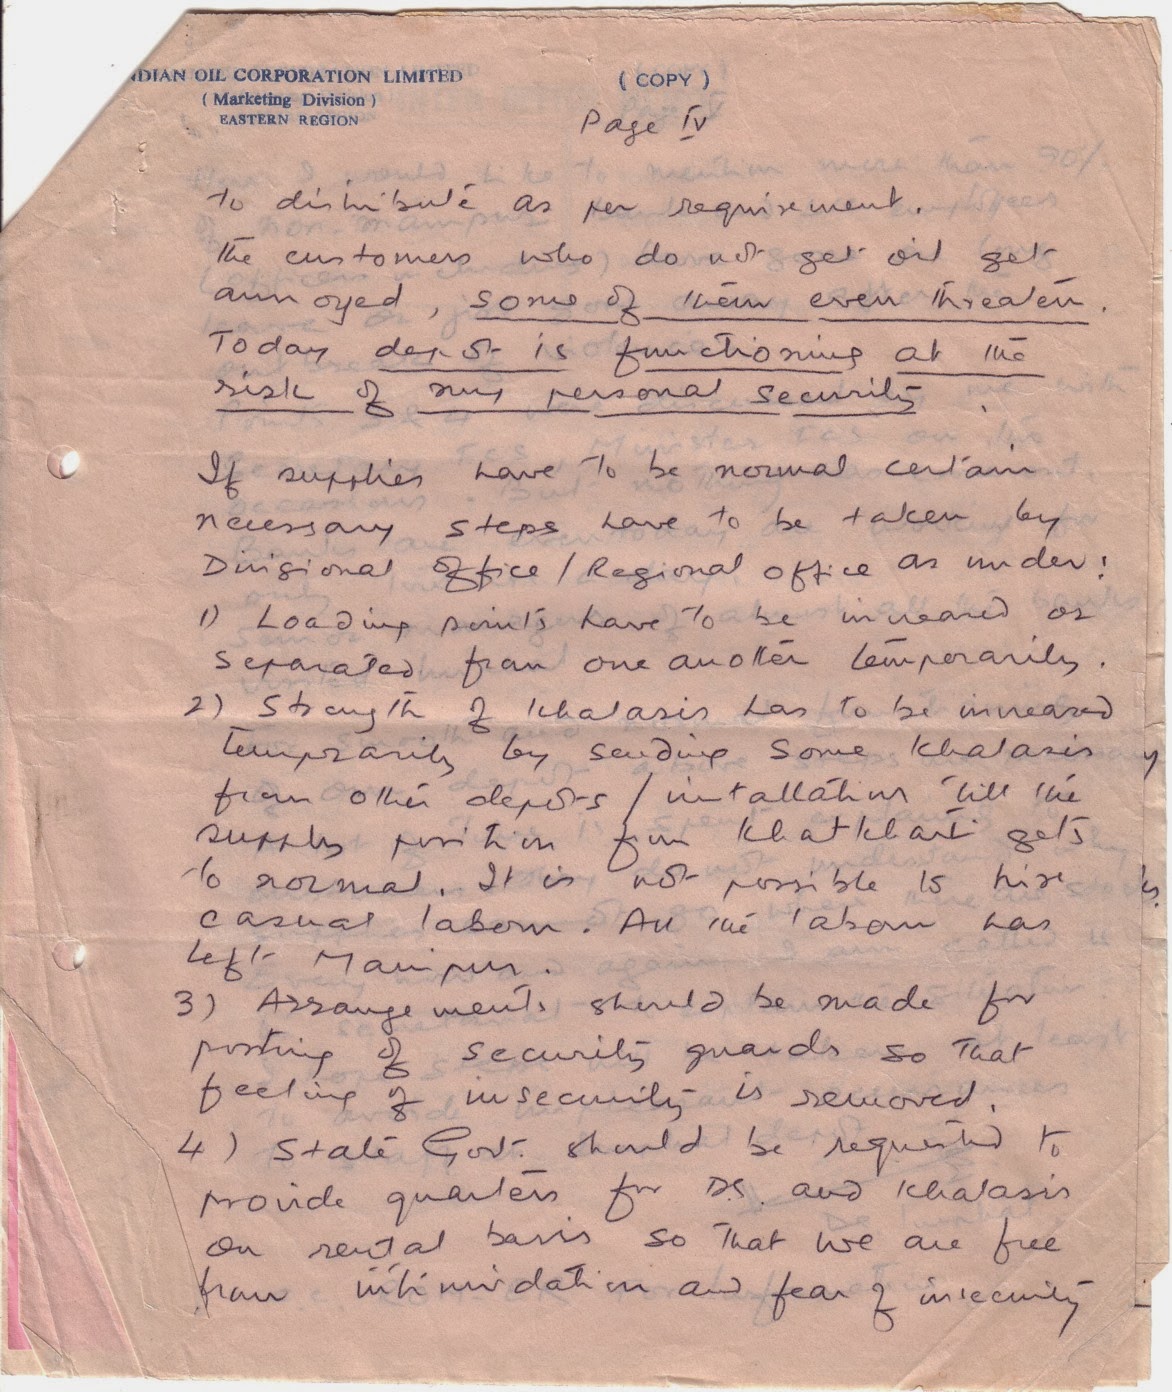 NDIAN OIL CORPORATION LIMITED
( Marketing Division )
EASTERN REGION
( COPY )
Page IV
to distribute as per requirement.
The customers who do not get oil get
annoyed, some of them even threaten.
Today depot is functioning at the
risk of my personal security.
If supplies have to be normal certain
necessary steps have to be taken by
Divisional office / Regional office as under:
1) Loading points have to be increased or
separated from one another temporarily.
2) Strength of Khalasis has to be increased
temporarily by sending some Khalasis
from other depots / installations till the
supply position from Khatkhati gets
to normal. It is not possible to hire
casual labour. All the labour has
left Manipur.
3) Arrangements should be made for
posting of security guards so that
feeling of insecurity is removed.
4) State Govt. should be requested to
provide quarters for D.S. and Khalasis
on rental basis so that we are free
from intimidation and fear of insecurity